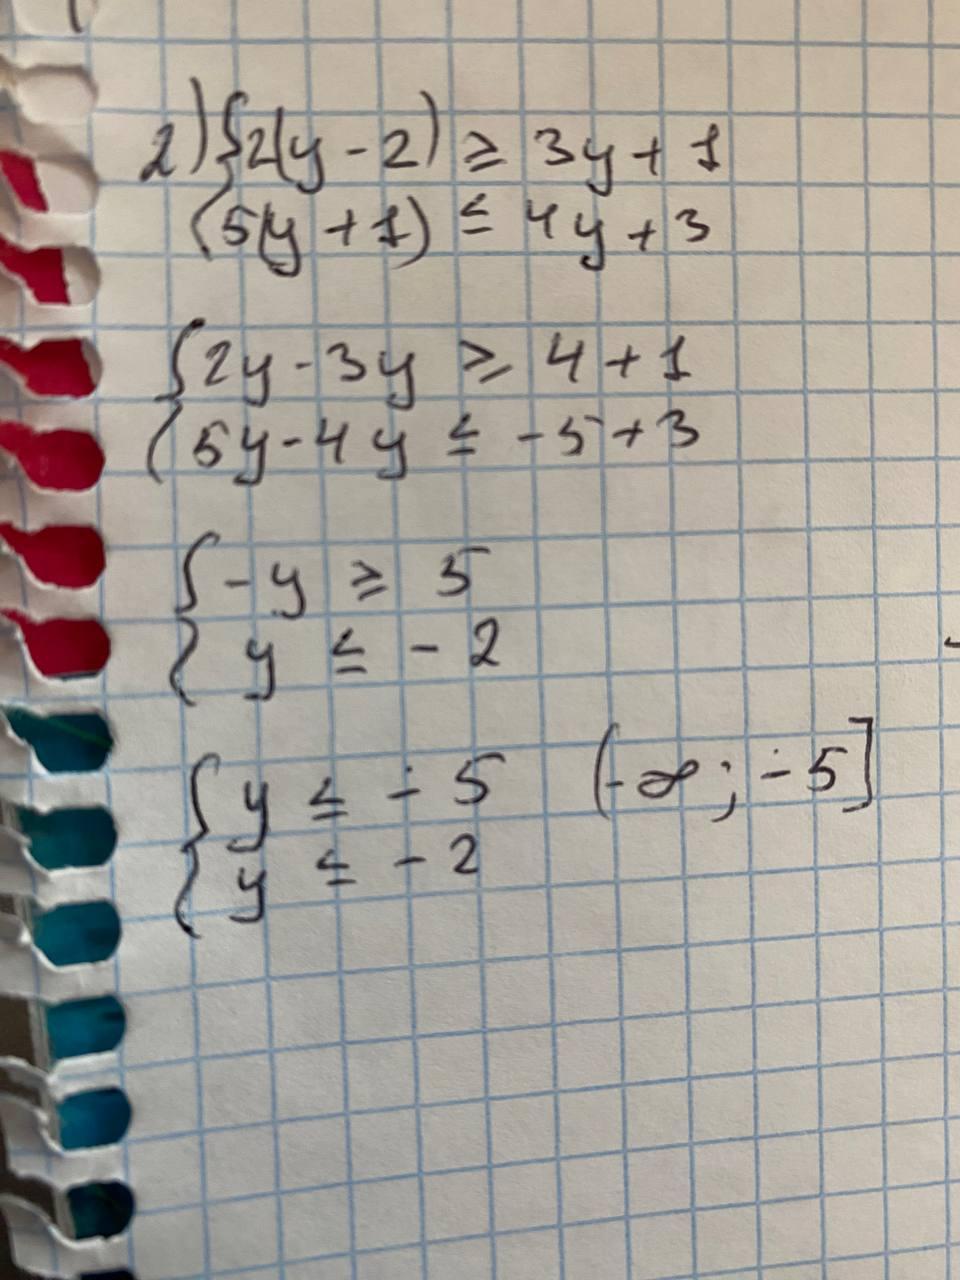 2) { 2(y - 2) ≥ 3y + 1
5(y + 1) ≤ 4y + 3
{ 2y - 3y ≥ 4 + 1
5y - 4y ≤ - 5 + 3
{ - y ≥ 5
y ≤ - 2
{ y ≤ - 5 (-∞; -5]
y ≤ - 2